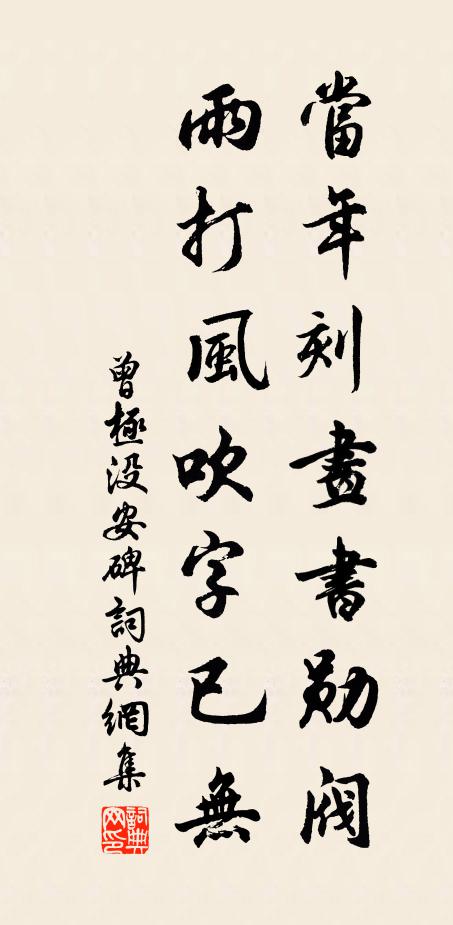 當年刻畫書勛閥
雨打風吹字已無
曾極没安碑詞典網集
詞典網印